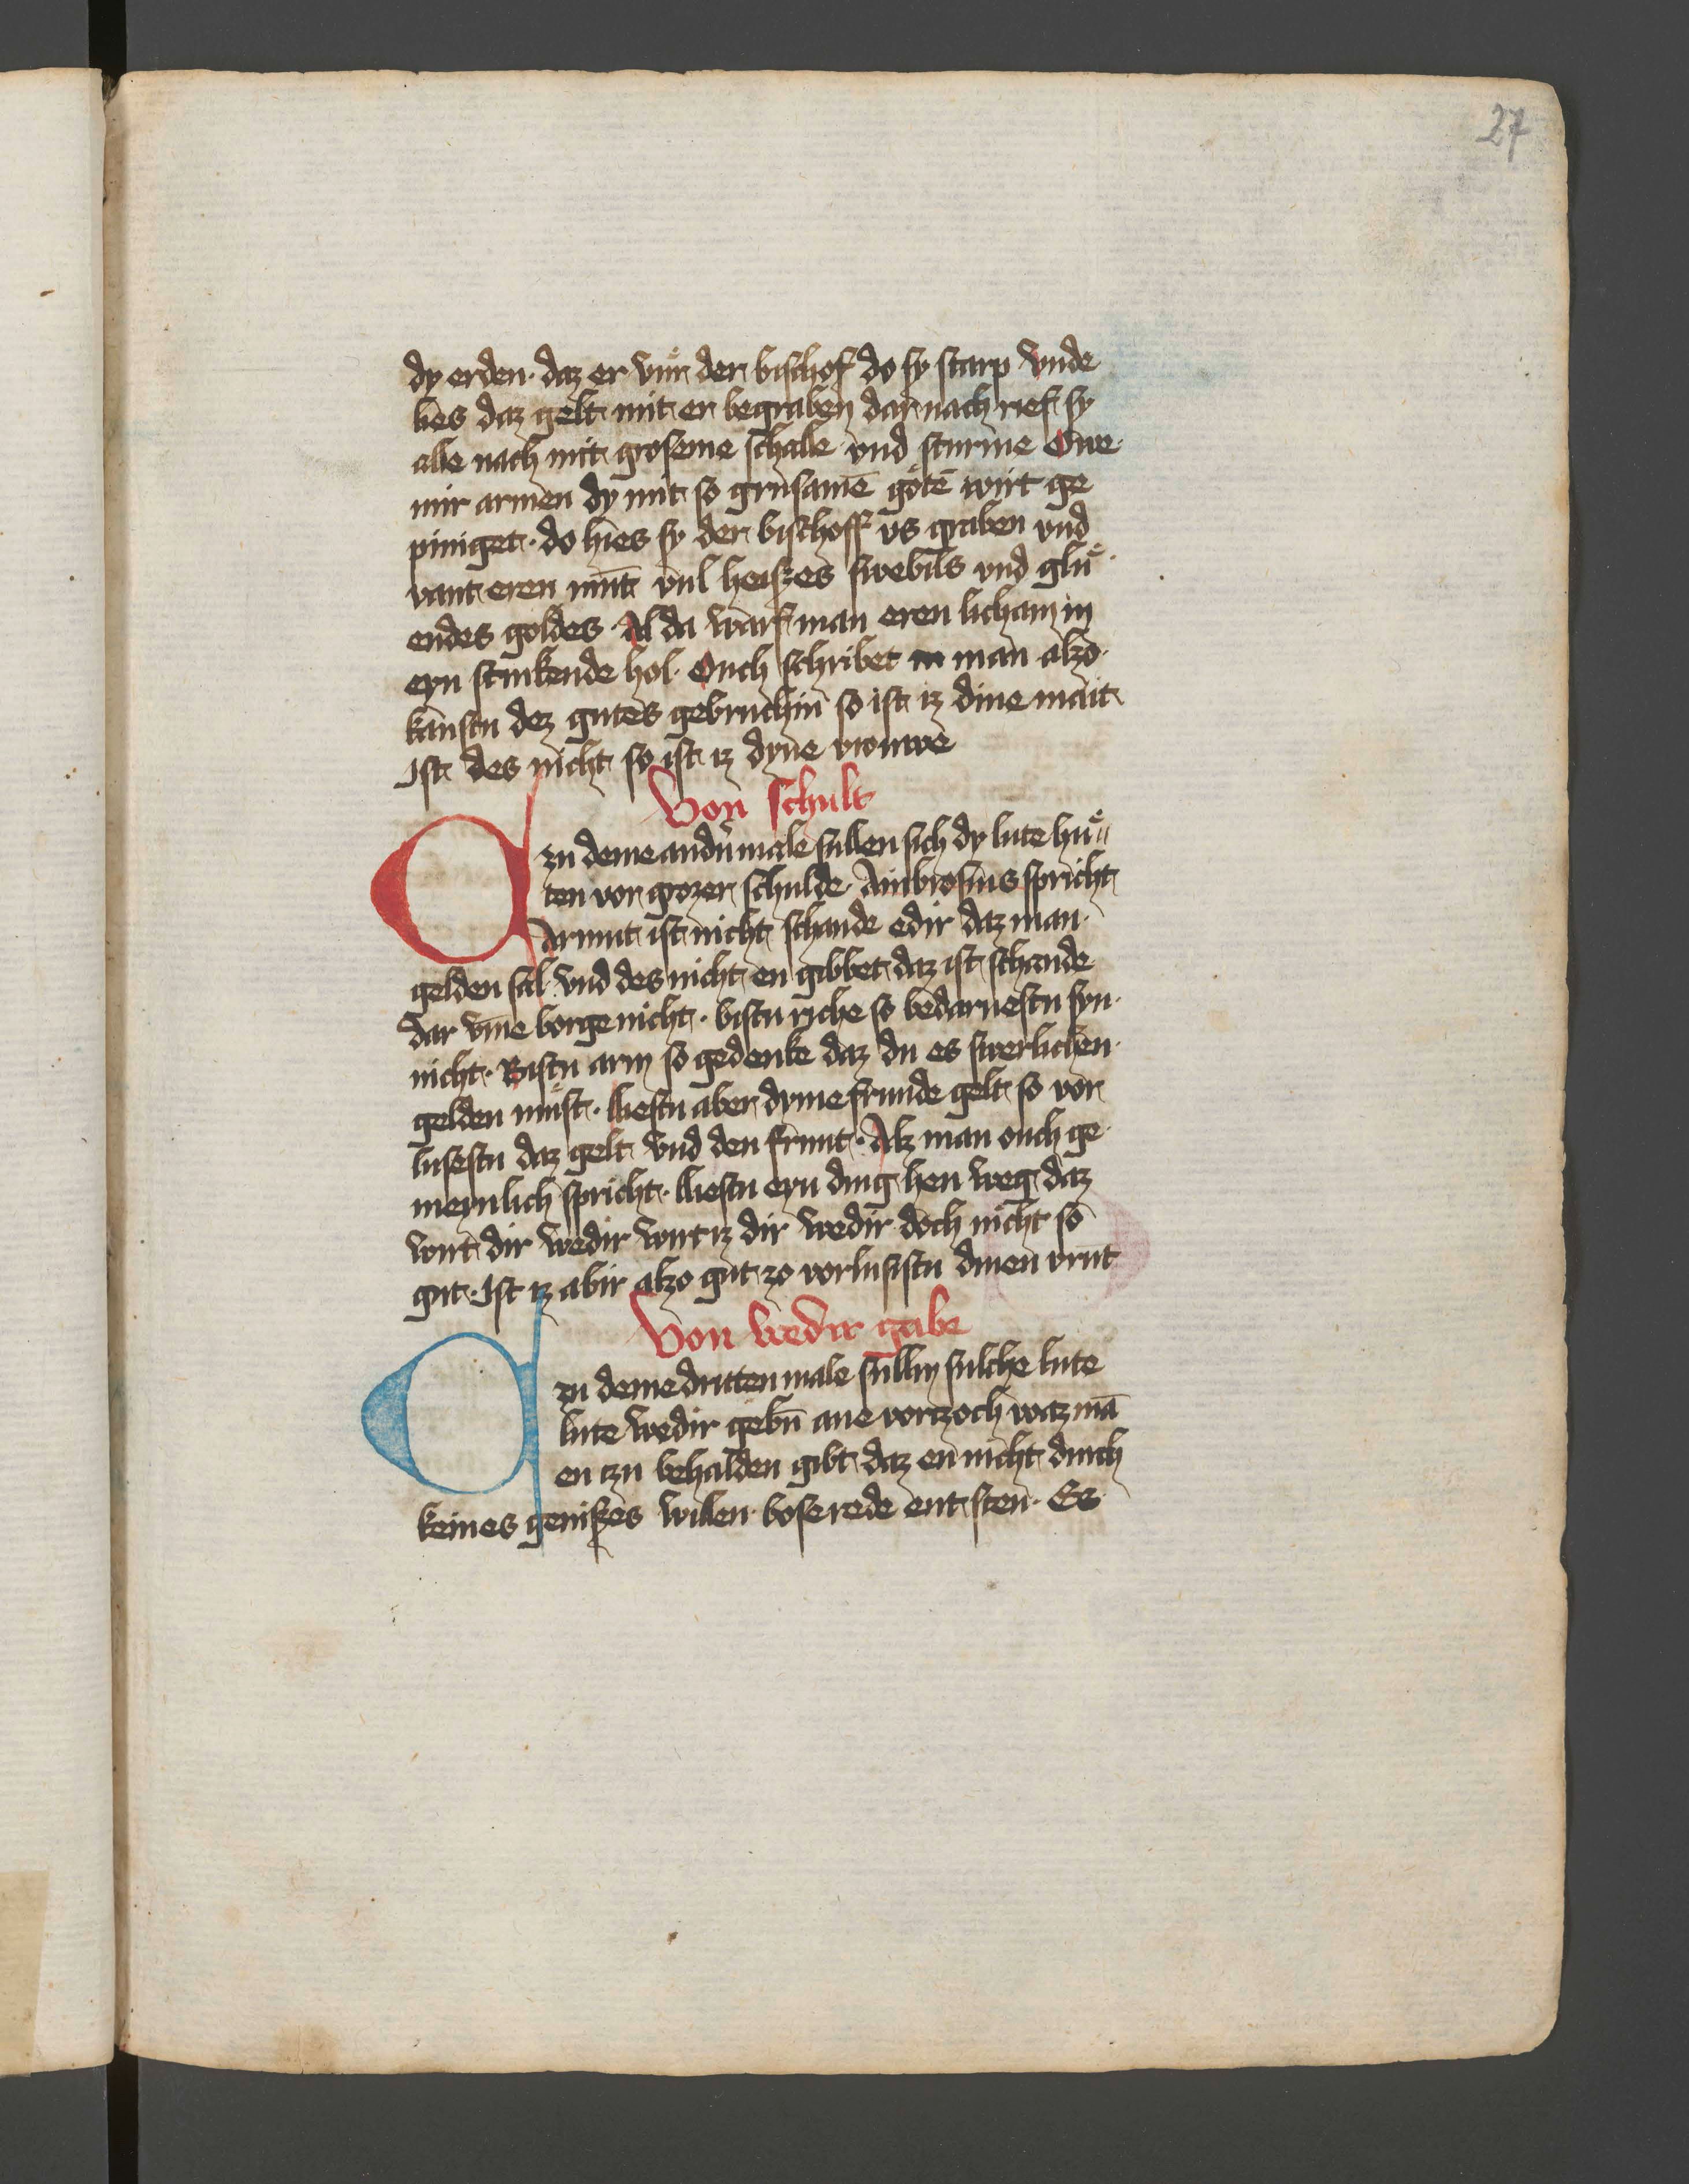 27
dy erden · daz er vur der bischof do sy starp vnde
lies daz gelt mit er begraben dar nach rief sy
alle nach mit groseme schalle vnd sturme Owe
mir armen dy mit so grusamē gőtē wirt ge
piniget · do hies sy der bischoff vs graben vnd
vant eren mūt vul heiszes swebils vnd gluͤ
endes goldes · Al da warf man eren licham in
eyn stinkende hol · Ouch schribet man alzo
kanstu dez gutes gebruchin so ist iz dine mait
Ist des nicht so ist iz dyne vrouwe
Von schult
Czu deme andir male sullen sich dy lute huͤ
ten vor grozer schulde · Ambrosius spricht
Armut ist nicht schande edir daz man
gelden sal vnd des nicht en gibbet daz ist schande
dar vme borge nicht · bistu riche so bedaruestu syn
nicht · Bistu arm so gedenke daz du es swerlichen
gelden must · Liestu aber dyme frunde gelt so vor
lusestu daz gelt vnd den frunt · Alz man ouch ge
meynlich spricht · Liestu eyn ding hen weg daz
wirt dir wedir wirt iz dir wedir doch nicht so
gut · Ist iz abir alzo gut zo vorlusistu dinen vrūt
Von wedir gabe
Czu deme dritten male sullin sulche lute
lute wedir gebn̄ ane vorczoch waz mā
en czu behalden gibt daz en nicht durch
keines geniszes willen bose rede ent sten · Es